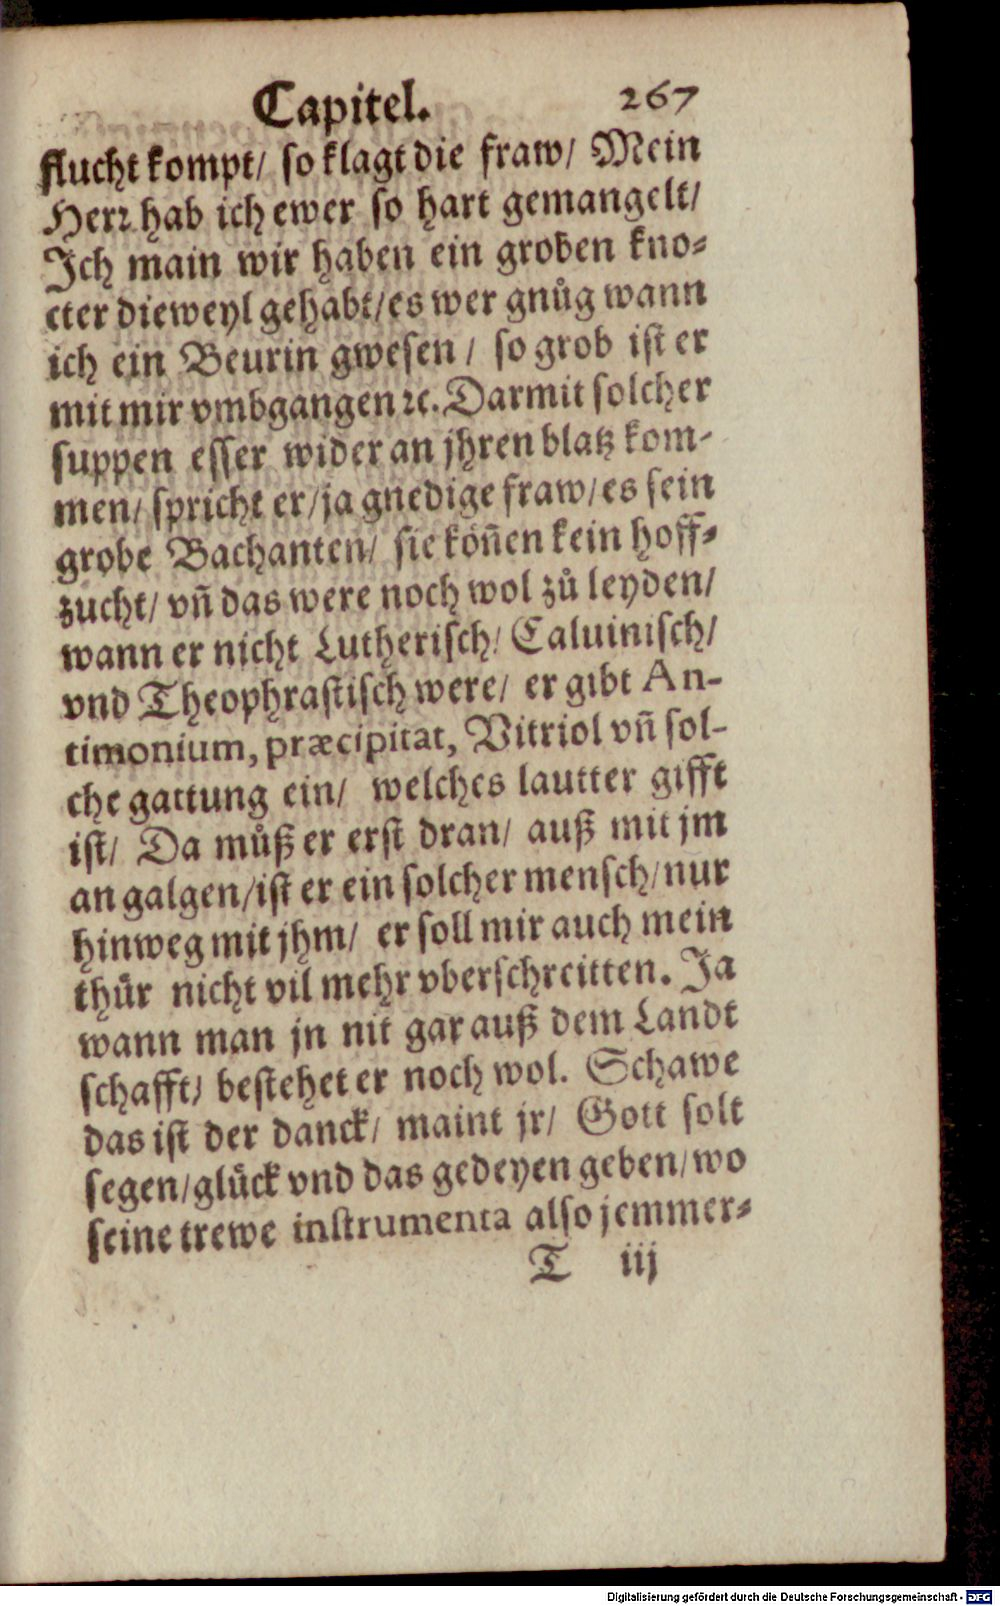 Capitel. 267
flucht kompt/ so klagt die fraw/ Mein
Herꝛ hab ich ewer so hart gemangelt/
Ich main wir haben ein groben kno⸗
cter dieweyl gehabt/ es wer gnůg wann
ich ein Beurin gwesen / so grob ist er
mit mir vmbgangen ꝛc. Darmit solcher
suppen esser wider an jhren blatz kom-
men/ spricht er/ ja gnedige fraw/ es sein
grobe Bachanten/ sie köñen kein hoff⸗
zucht/ vñ das were noch wol zů leyden/
wann er nicht Lutherisch/ Caluinisch/
vnd Theophrastisch were/ er gibt An-
timonium, præcipitat, Vitriol vñ sol-
che gattung ein/ welches lautter gifft
ist/ Da můß er erst dran/ auß mit jm
an galgen/ ist er ein solcher mensch/ nur
hinweg mit jhm/ er soll mir auch mein
thür nicht vil mehr vberschreitten. Ja
wann man jn nit gar auß dem Landt
schafft/ bestehet er noch wol. Schawe
das ist der danck/ maint jr/ Gott solt
segen/ glück vnd das gedeyen geben/ wo
seine trewe instrumenta also jemmer⸗
T iij
Digitalisierung gefördert durch die Deutsche Forschungsgemeinschaft - DFG